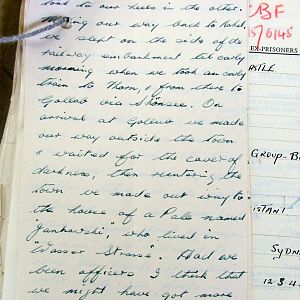 took to our heels in the other.
our way back to
we slept on the side of the
railway embankment till early
morning when we took an early
train to Thorn, & from there to
Gollub via Schönsee. On
arrival at Gollub we made
our way outside the town
& waited for the cover of
darkness, then reentering the
town we made our way to
the house of a Pole named
Jankowski, who lived in
"Wasser Strasse". Had we
been officers I think that
we might have got more
BF
EX-PRISONERS
STLE
GROUP-B
ISTANT
SYDN
12.3.4